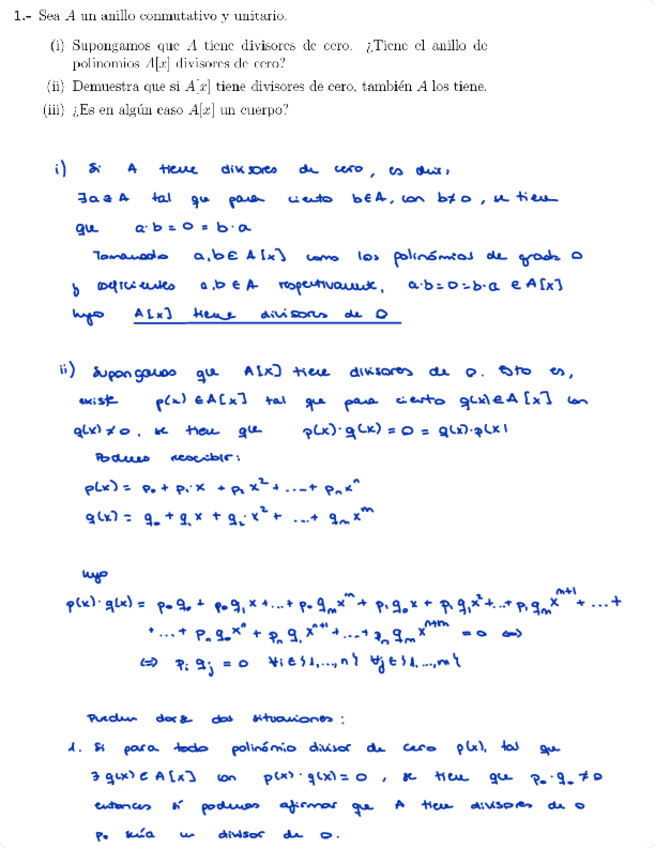 1.- Sea A un anillo conmutativo y unitario.
(i) Supongamos que A tiene divisores de cero. ¿Tiene el anillo de
polinomios A[x] divisores de cero?
(ii) Demuestra que si A[x] tiene divisores de cero, también A los tiene.
(iii) ¿Es en algún caso A[x] un cuerpo?
i) Si A tiene divisores de cero, es decir,
∃a∈A tal que para cierto b∈A, con b≠0, se tiene
que a·b = 0 = b·a
Tomando a,b∈A[x] como los polinómios de grado 0
y coeficientes a,b∈A respectivamente, a·b=0=b·a ∈A[x]
luego A[x] tiene divisores de 0
ii) Supongamos que A[x] tiene divisores de 0. Esto es,
existe p(x)∈A[x] tal que para cierto q(x)∈A[x] con
q(x)≠0, se tiene que p(x)·q(x) = 0 = q(x)·p(x)
Podemos reescribir:
p(x) = p₀ + p₁·x + p₂x² + ... + pₙxⁿ
q(x) = q₀ + q₁x + q₂·x² + ... + qₘxᵐ
luego
p(x)·q(x) = p₀q₀ + p₀q₁x + ... + p₀qₘxᵐ + p₁q₀x + p₁q₁x² + ... + p₁qₘxᵐ⁺¹ + ... +
+ ... + pₙq₀xⁿ + pₙq₁xⁿ⁺¹ + ... + pₙqₘxⁿ⁺ᵐ = 0 ⇔
⇔ pᵢqⱼ = 0 ∀i∈{1,...,n} ∀j∈{1,...,m}
Pueden darse dos situaciones:
1. Si para todo polinómio divisor de cero p(x), tal que
∃q(x)∈A[x] con p(x)·q(x)=0, se tiene que p₀·q₀≠0
entonces sí podemos afirmar que A tiene divisores de 0
p₀ sería un divisor de 0.